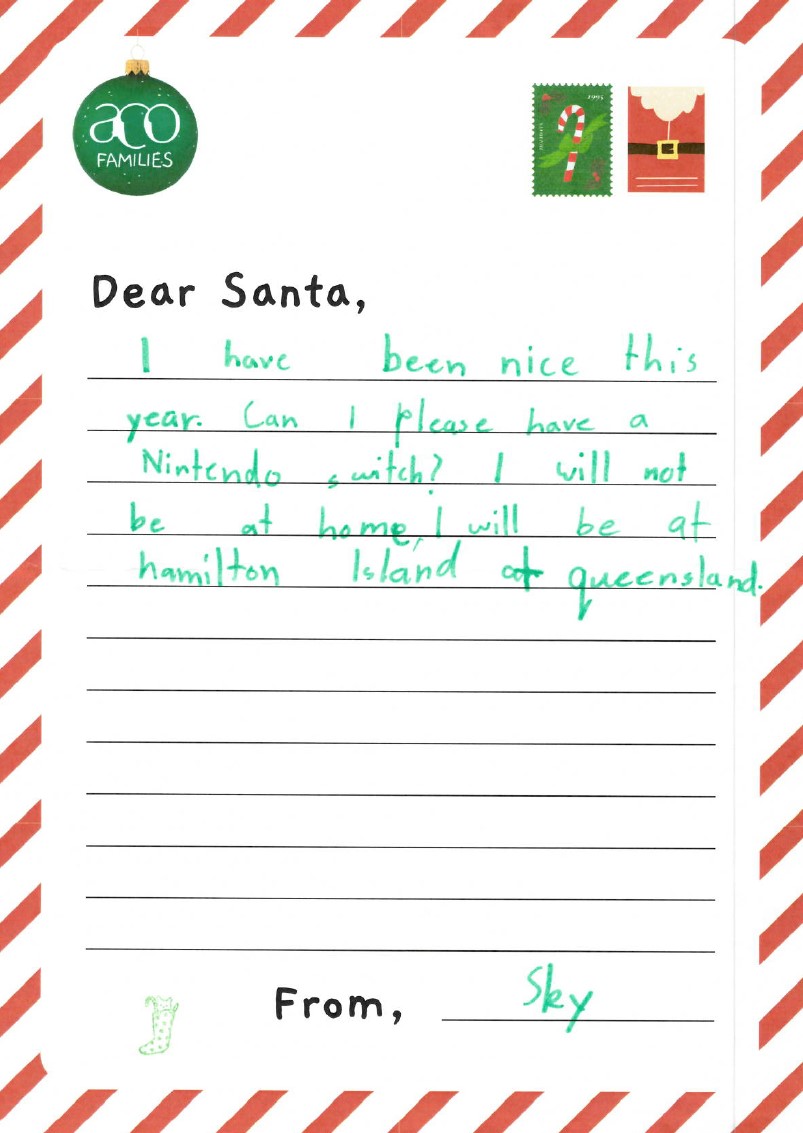 aco
FAMILIES
1995
Dear Santa,
I have been nice this
year. Can I please have a
Nintendo switch? I will not
be at home, I will be at
hamilton Island at queensland.
From, Sky